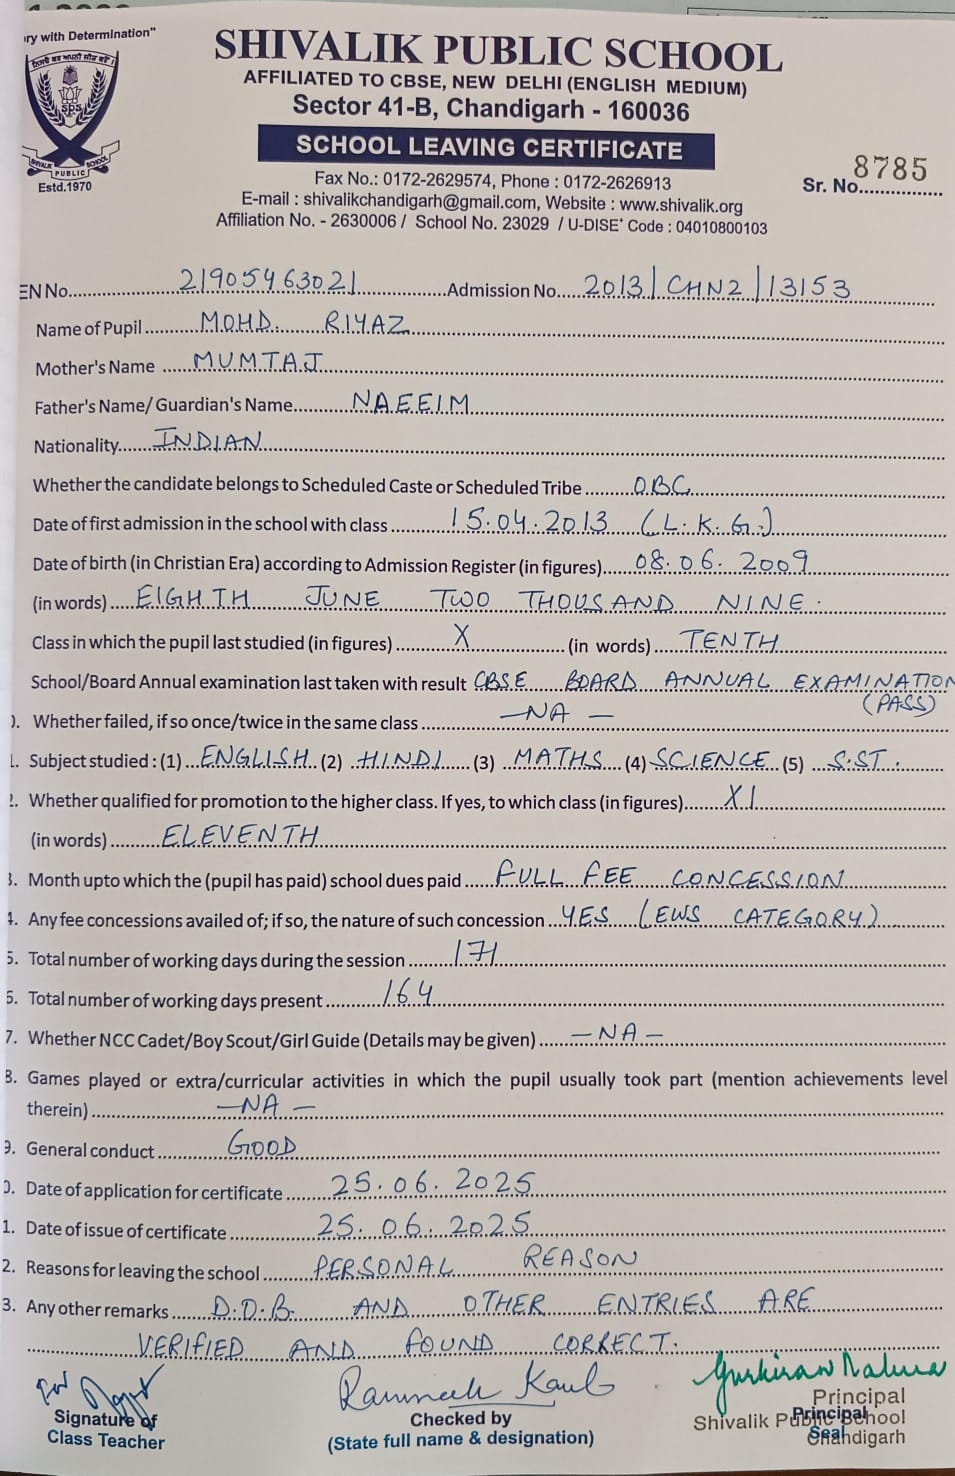 ry with Determination"
SHIVALIK PUBLIC SCHOOL
AFFILIATED TO CBSE, NEW DELHI (ENGLISH MEDIUM)
Sector 41-B, Chandigarh - 160036
SCHOOL LEAVING CERTIFICATE
SPS
SHIVALIK PUBLIC SCHOOL
Estd.1970
Fax No.: 0172-2629574, Phone : 0172-2626913
Sr. No. 8785
E-mail : shivalikchandigarh@gmail.com, Website : www.shivalik.org
Affiliation No. - 2630006 / School No. 23029 / U-DISE+ Code : 04010800103
EN No. 21905463021 Admission No. 2013/CHN2/13153
Name of Pupil MOHD. RIYAZ
Mother's Name MUMTAJ
Father's Name/ Guardian's Name NAEEIM
Nationality INDIAN
Whether the candidate belongs to Scheduled Caste or Scheduled Tribe OBC
Date of first admission in the school with class 15.04.2013 (L.K.G.)
Date of birth (in Christian Era) according to Admission Register (in figures) 08.06.2009
(in words) EIGHTH JUNE TWO THOUSAND NINE.
Class in which the pupil last studied (in figures) X (in words) TENTH
School/Board Annual examination last taken with result CBSE BOARD ANNUAL EXAMINATION
(PASS)
). Whether failed, if so once/twice in the same class -NA-
1. Subject studied : (1) ENGLISH (2) HINDI (3) MATHS (4) SCIENCE (5) S.ST.
2. Whether qualified for promotion to the higher class. If yes, to which class (in figures) XI
(in words) ELEVENTH
3. Month upto which the (pupil has paid) school dues paid FULL FEE CONCESSION
4. Any fee concessions availed of; if so, the nature of such concession YES (EWS CATEGORY)
5. Total number of working days during the session 171
6. Total number of working days present 164
7. Whether NCC Cadet/Boy Scout/Girl Guide (Details may be given) -NA-
8. Games played or extra/curricular activities in which the pupil usually took part (mention achievements level
therein) -NA-
9. General conduct GOOD
0. Date of application for certificate 25.06.2025
1. Date of issue of certificate 25.06.2025
2. Reasons for leaving the school PERSONAL REASON
3. Any other remarks D.O.B. AND OTHER ENTRIES ARE
VERIFIED AND FOUND CORRECT.
Signature of
Class Teacher
Kaul
Checked by
(State full name & designation)
Principal
Shivalik Public School
Chandigarh
Principal
Seal